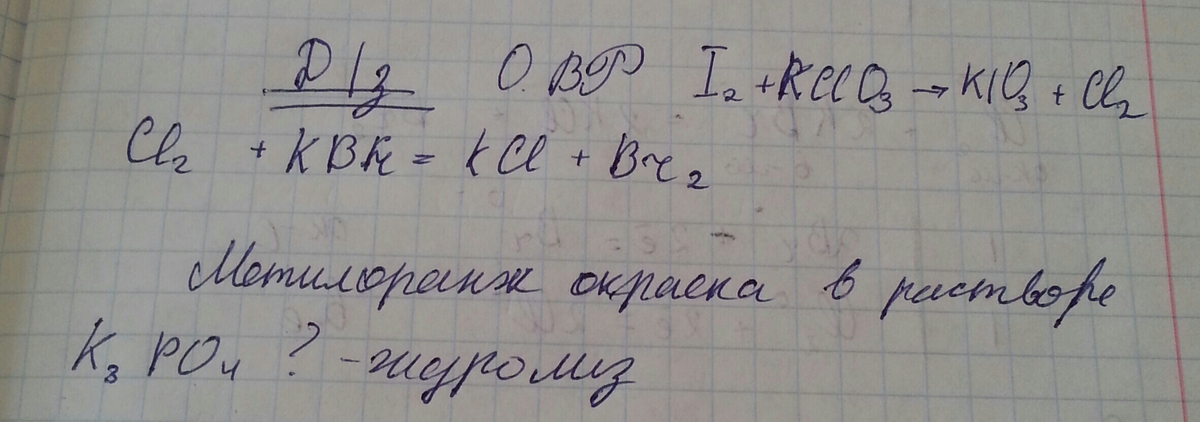 Д/з ОВР I₂ + KClO₃ → KIO₃ + Cl₂
Cl₂ + KBr = KCl + Br₂
Метилоранж окраска в растворе
K₃PO₄ ? - гидролиз